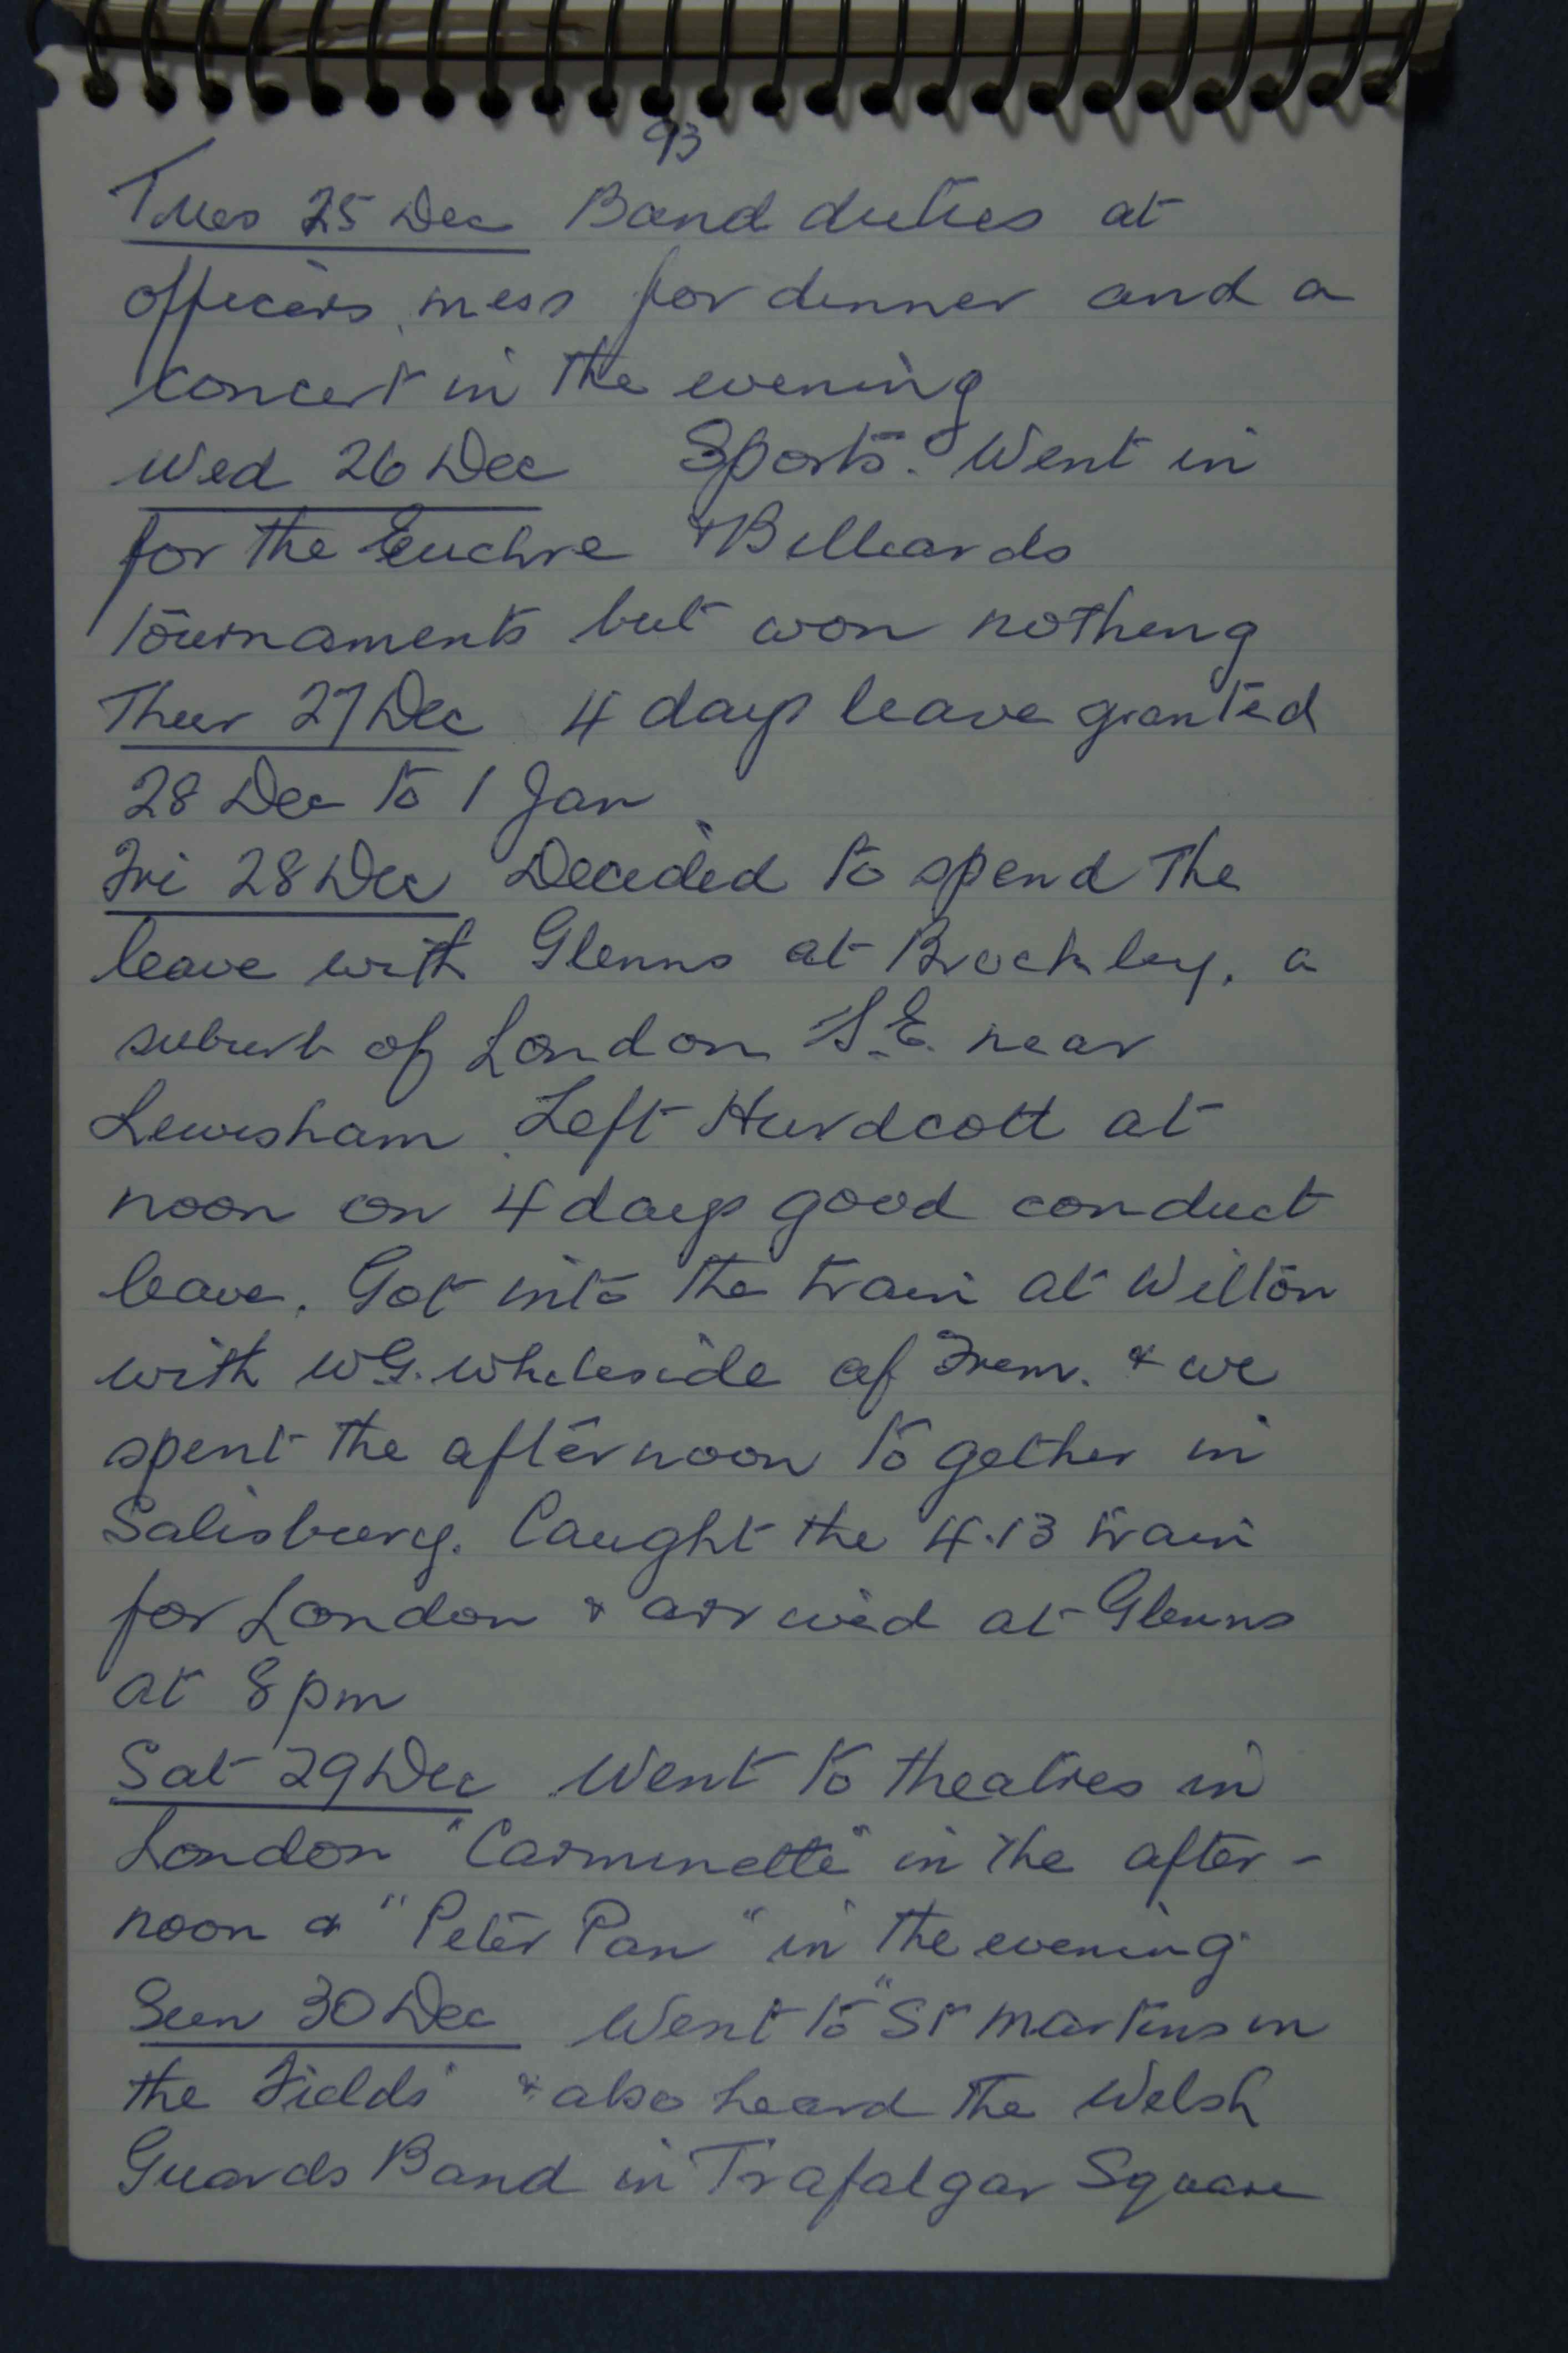 93
Tues 25 Dec Band duties at
officers mess for dinner and a
concert in the evening
Wed 26 Dec Sports. Went in
for the Euchre & Billiards
tournaments but won nothing
Thur 27 Dec 4 days leave granted
28 Dec to 1 Jan
Fri 28 Dec Decided to spend the
leave with Glenns at Brockley, a
suburb of London S.E. near
Lewisham. Left Hurdcott at
noon on 4 days good conduct
leave. Got into the train at Wilton
with WG. Whiteside of Frem. & we
spent the afternoon together in
Salisbury. Caught the 4.13 train
for London & arrived at Glenns
at 8 pm
Sat 29 Dec Went to theatres in
London "Carminetta" in the after-
noon & "Peter Pan" in the evening
Sun 30 Dec Went to "St Martins in
the Fields" & also heard the Welsh
Guards Band in Trafalgar Square